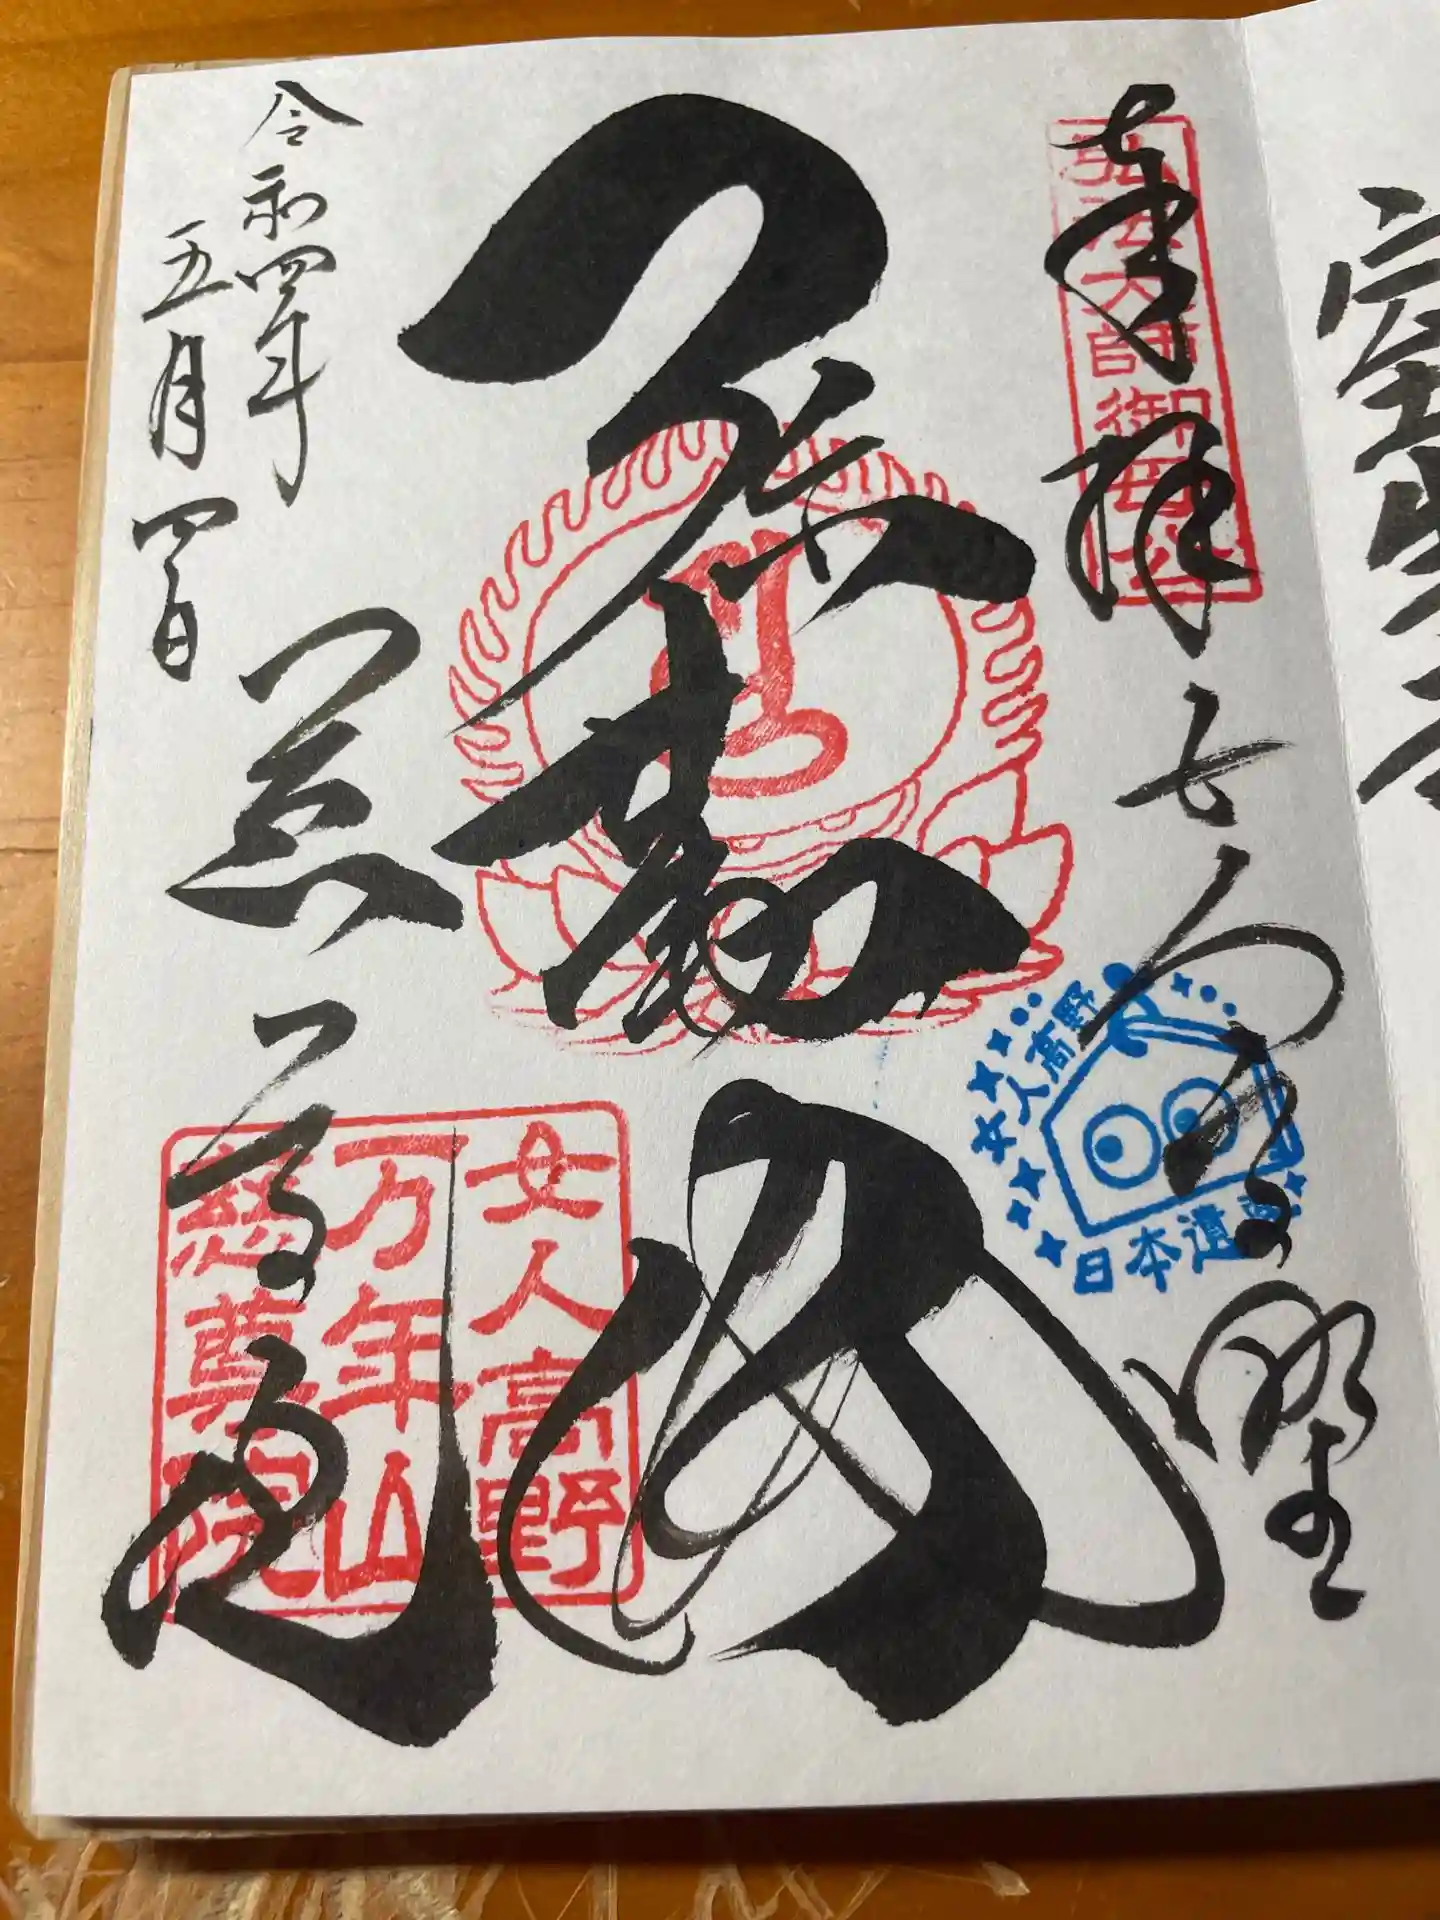 奉拝 女人高野
弘法大師御母公
弥勒佛
女人高野
日本遺産
慈尊院
女人高野
万年山
慈尊院
令和四年
五月四日